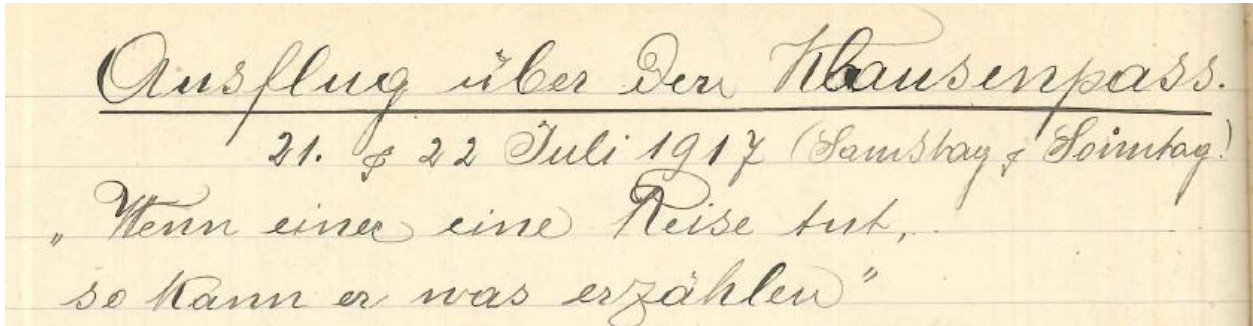 Ausflug über den Klausenpass.
21. & 22 Juli 1917 (Samstag & Sonntag)
„Wenn einer eine Reise tut,
so kann er was erzählen"